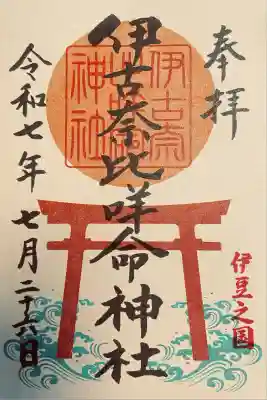 奉拝
伊古奈比咩命神社
伊古奈
神社
令和七年 七月二十六日
伊豆之国